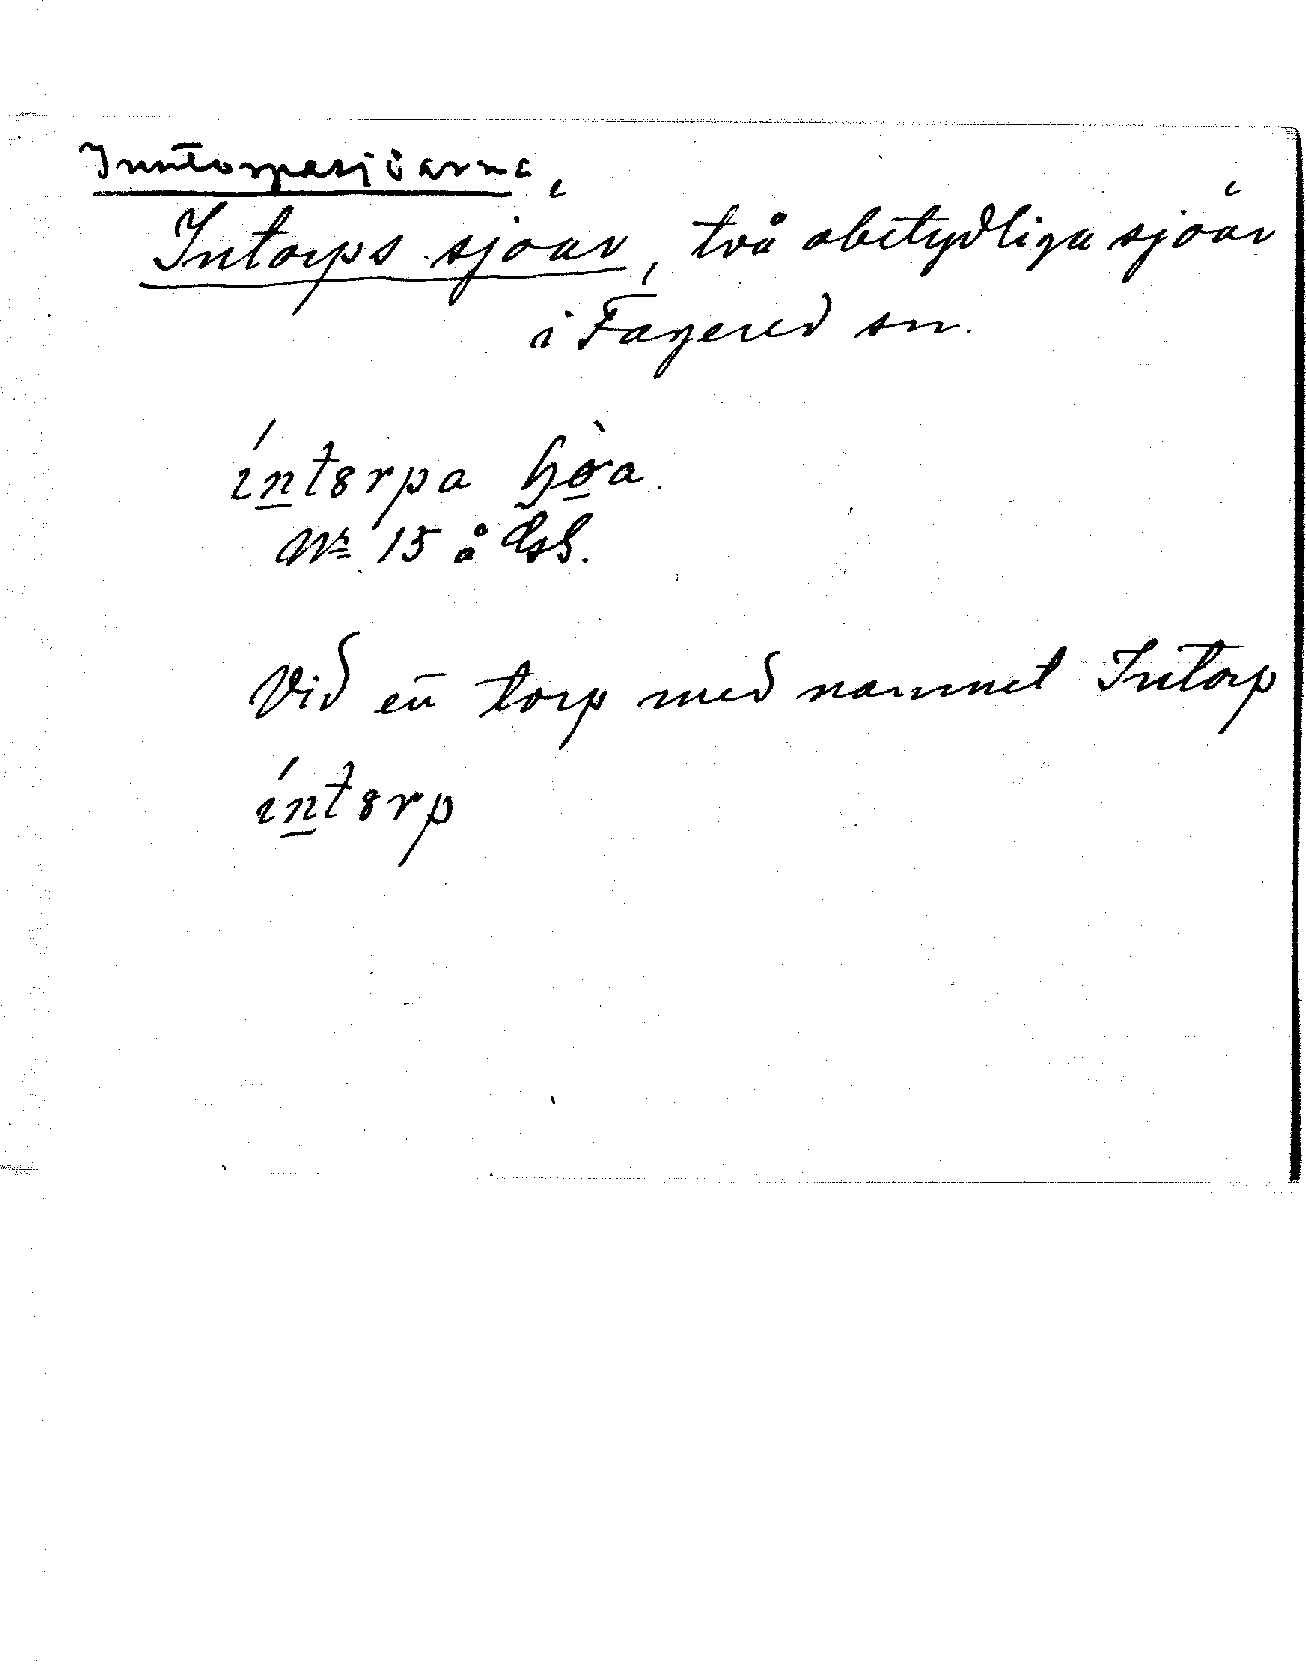 Inntorpasjöarna
Intorps sjöar, två obetydliga sjöar
i Fagered sn.
íntorpa
No 15 å
Vid en torp med namnet Intorp
íntorp